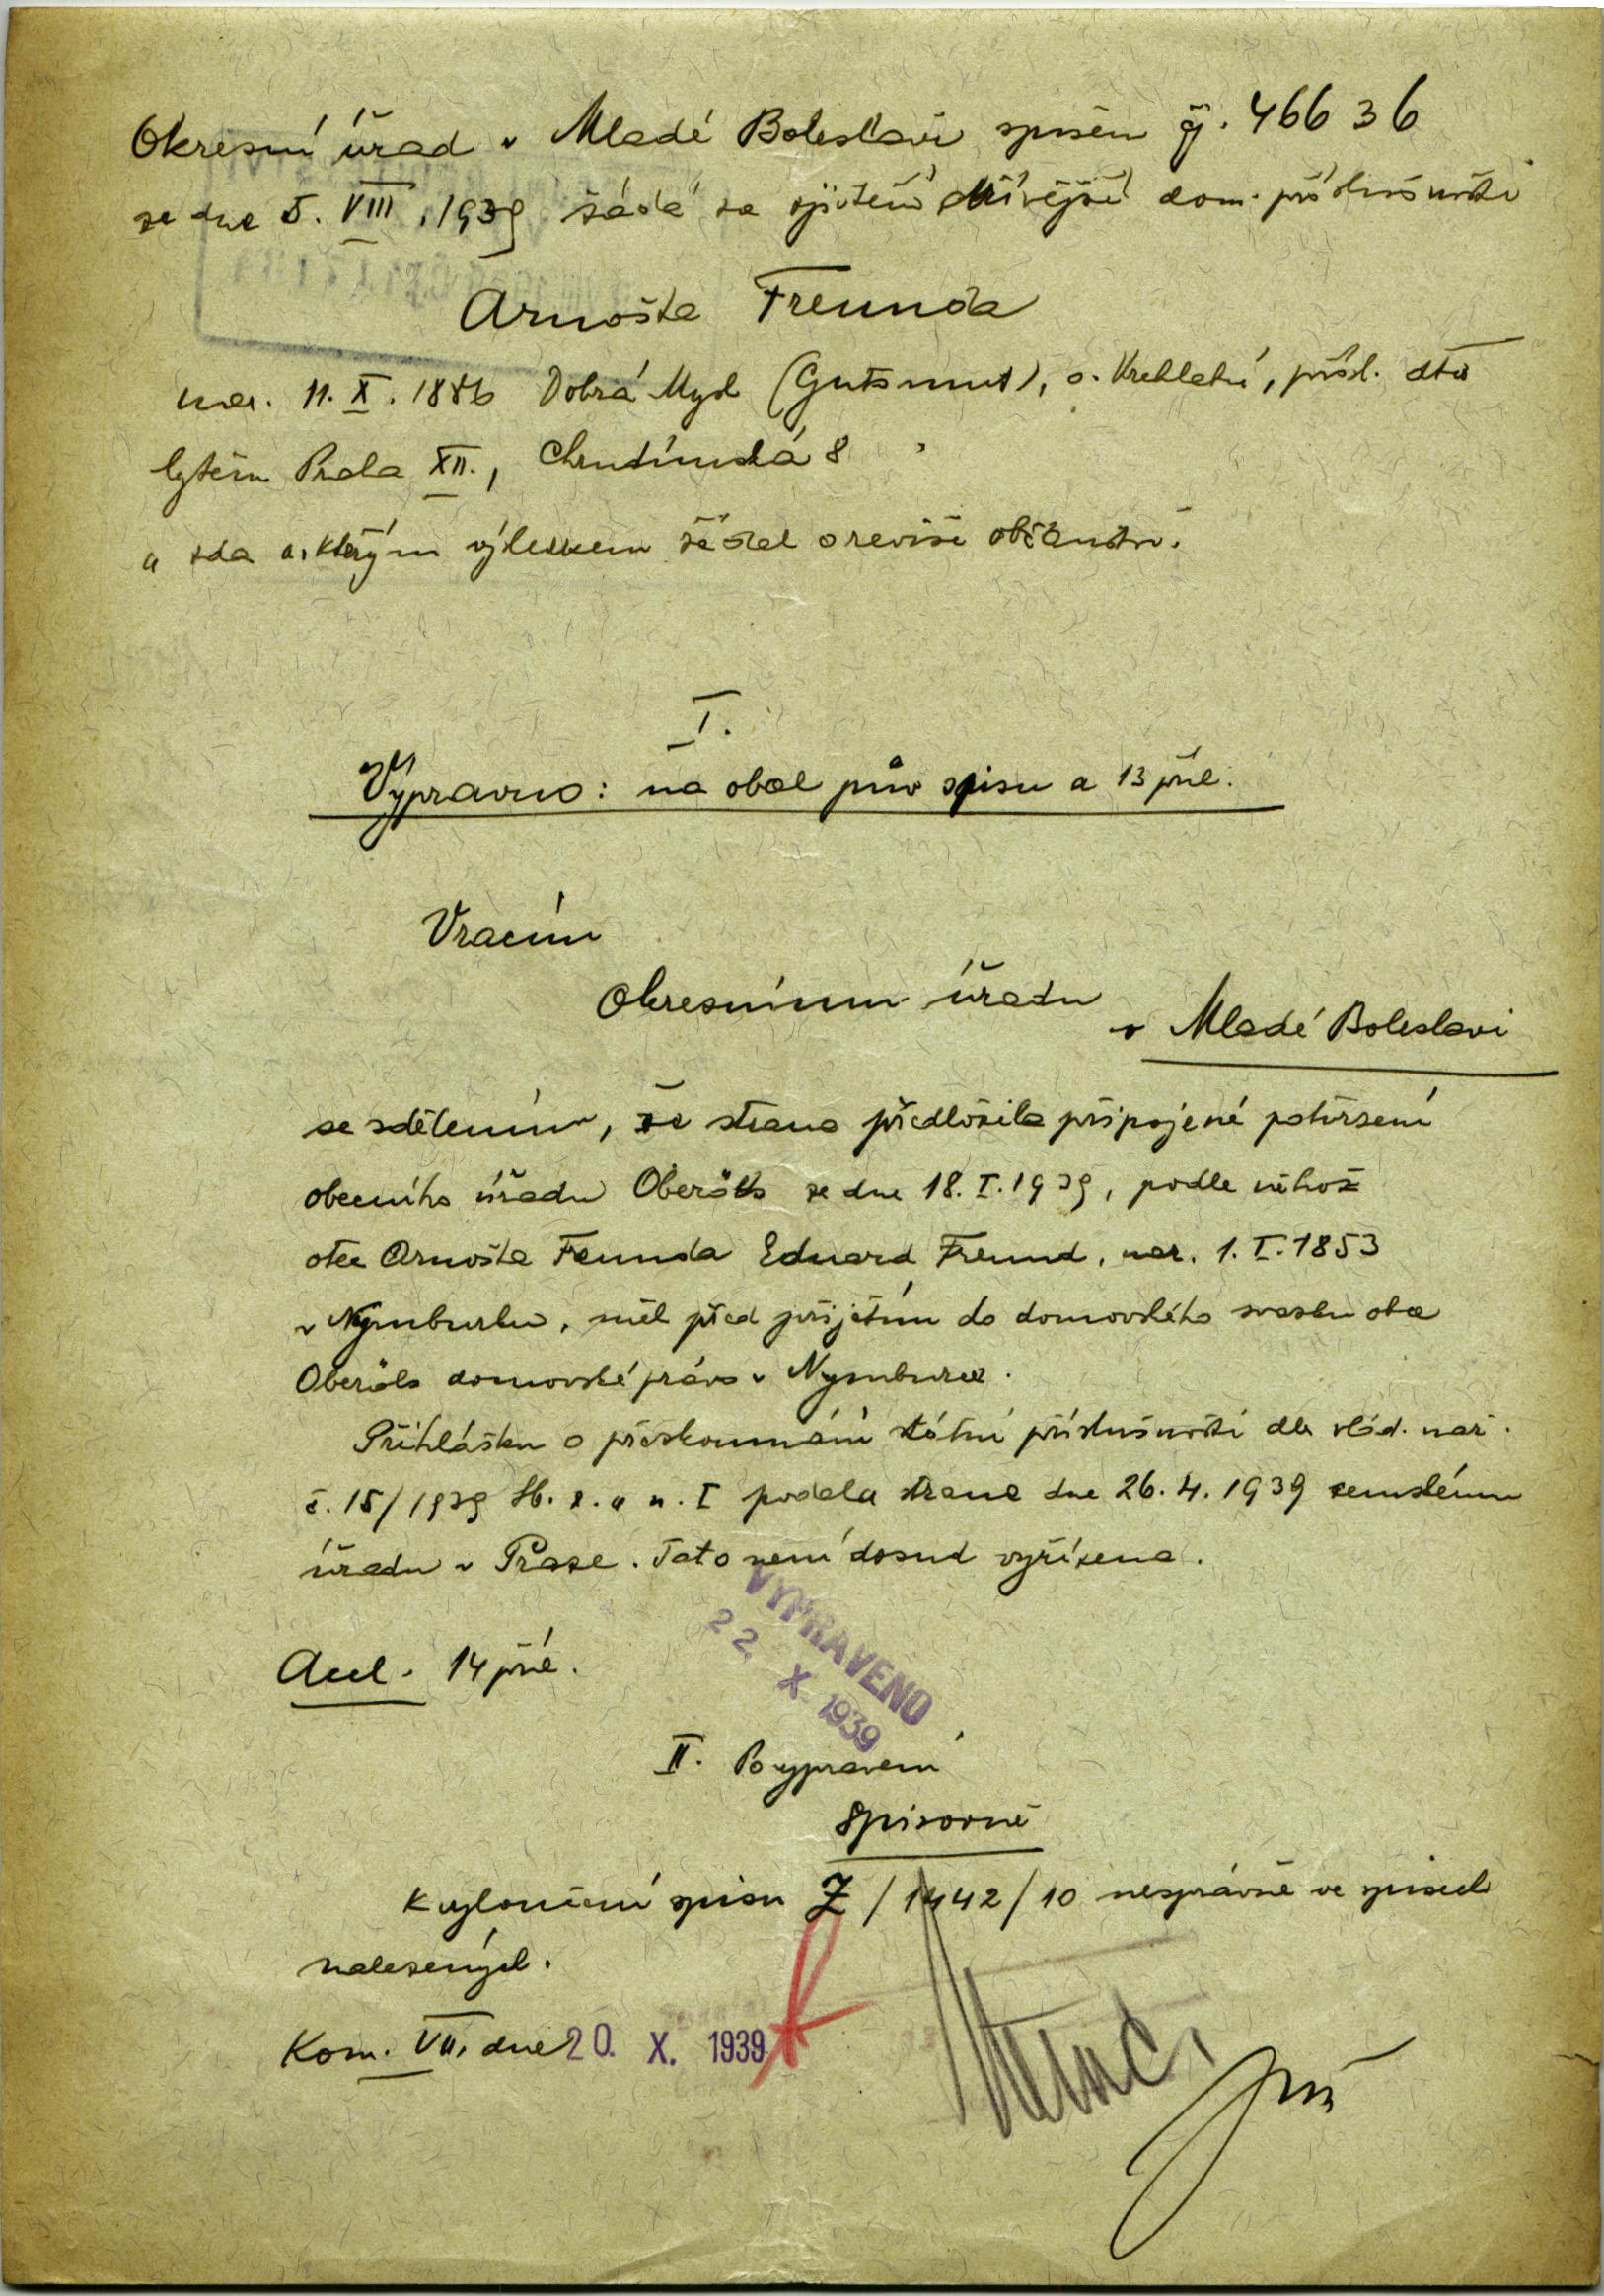 Okresní úřad v Mladé Boleslavi spisem čj. 46636
ze dne 5. VIII. 1939 žádá za zjištění dřívější dom. příslušnosti
Arnošta Freunda
nar. 11. X. 1886 Dobrá Mysl (Gutsmut), o. Vrchlabí, přísl. dtto
bytem Praha XII., Chrudimská 8
a zda a s kterým výsledkem žádal o revisi občanství.
I.
Výpravno: na obal pův spisu a 13 příl.
Vracím
Okresnímu úřadu
v Mladé Boleslavi
se sdělením, že strana předložila připojené potvrzení
obecního úřadu Oberöls ze dne 18. I. 1939, podle něhož
otec Arnošta Freunda Eduard Freund, nar. 1. I. 1853
v Nymburku, měl před přijetím do domovského svazku obce
Oberöls domovské právo v Nymburce.
Přihlášku o přezkoumání státní příslušnosti dle vlád. nař.
č. 15/1939 Sb. z. a n. I podala strana dne 26. 4. 1939 zemskému
úřadu v Praze. Tato není dosud vyřízena.
VYPRAVENO
22. X. 1939
Acel. 14 příl.
II. Po vypravení
Spisovně
K vyloučení spisu Z/1442/10 nesprávně ve spisech
nalezených.
Kom. VII. dne 20. X. 1939